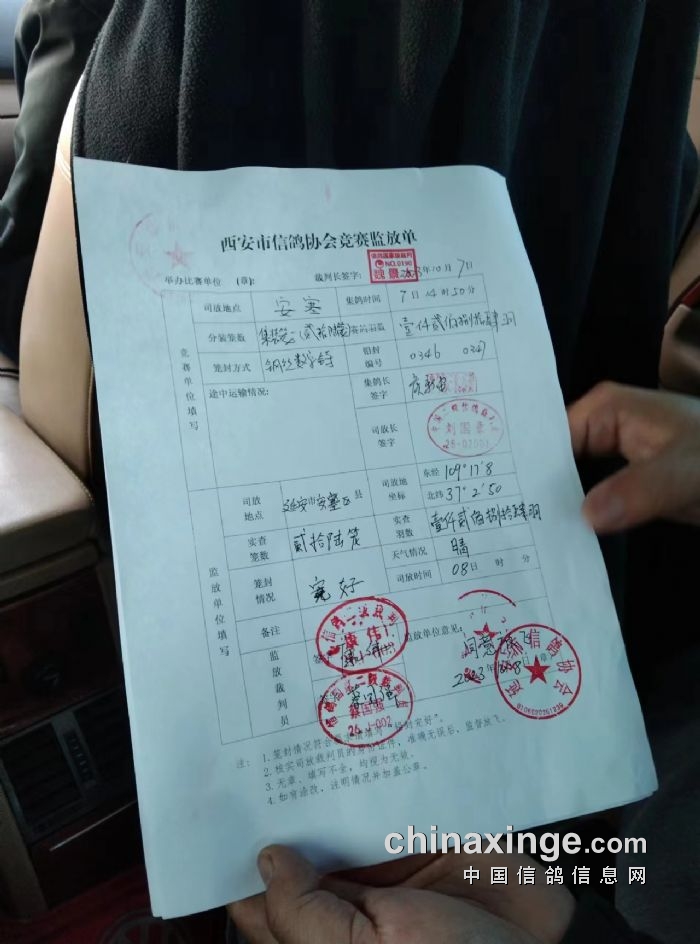 西安市信鸽协会竞赛监放单
举办比赛单位 （章）： 裁判长签字： 2023年10月7日
信鸽国家级裁判
NO.0190
竞赛单位填写
司放地点 安塞 集鸽时间 7日14时50分
分装笼数 赛鸽羽数 壹仟贰佰捌拾肆羽
笼封方式 铅封编号 0346 0347
途中运输情况： 集鸽长签字
司放长签字
刘国豪
监放单位填写
司放地点 延安市安塞区县 司放地坐标 东经 109°17'8
北纬 37°2'50
实查笼数 贰拾陆笼 实查羽数 壹仟贰佰捌拾肆羽
笼封情况 完好 天气情况 晴
司放时间 08日 时 分
备注
监放裁判员
康伟
蔡国强
监放单位意见：
同意放飞
信鸽协会
6106020261239
注：
1. 笼封情况符合
2. 核实司放裁判员的身份证件，准确无误后，监督放飞。
3. 无章、填写不全，均视为无效。
4. 如有涂改，注明情况并加盖公章。
chinaxinge.com
中国信鸽信息网